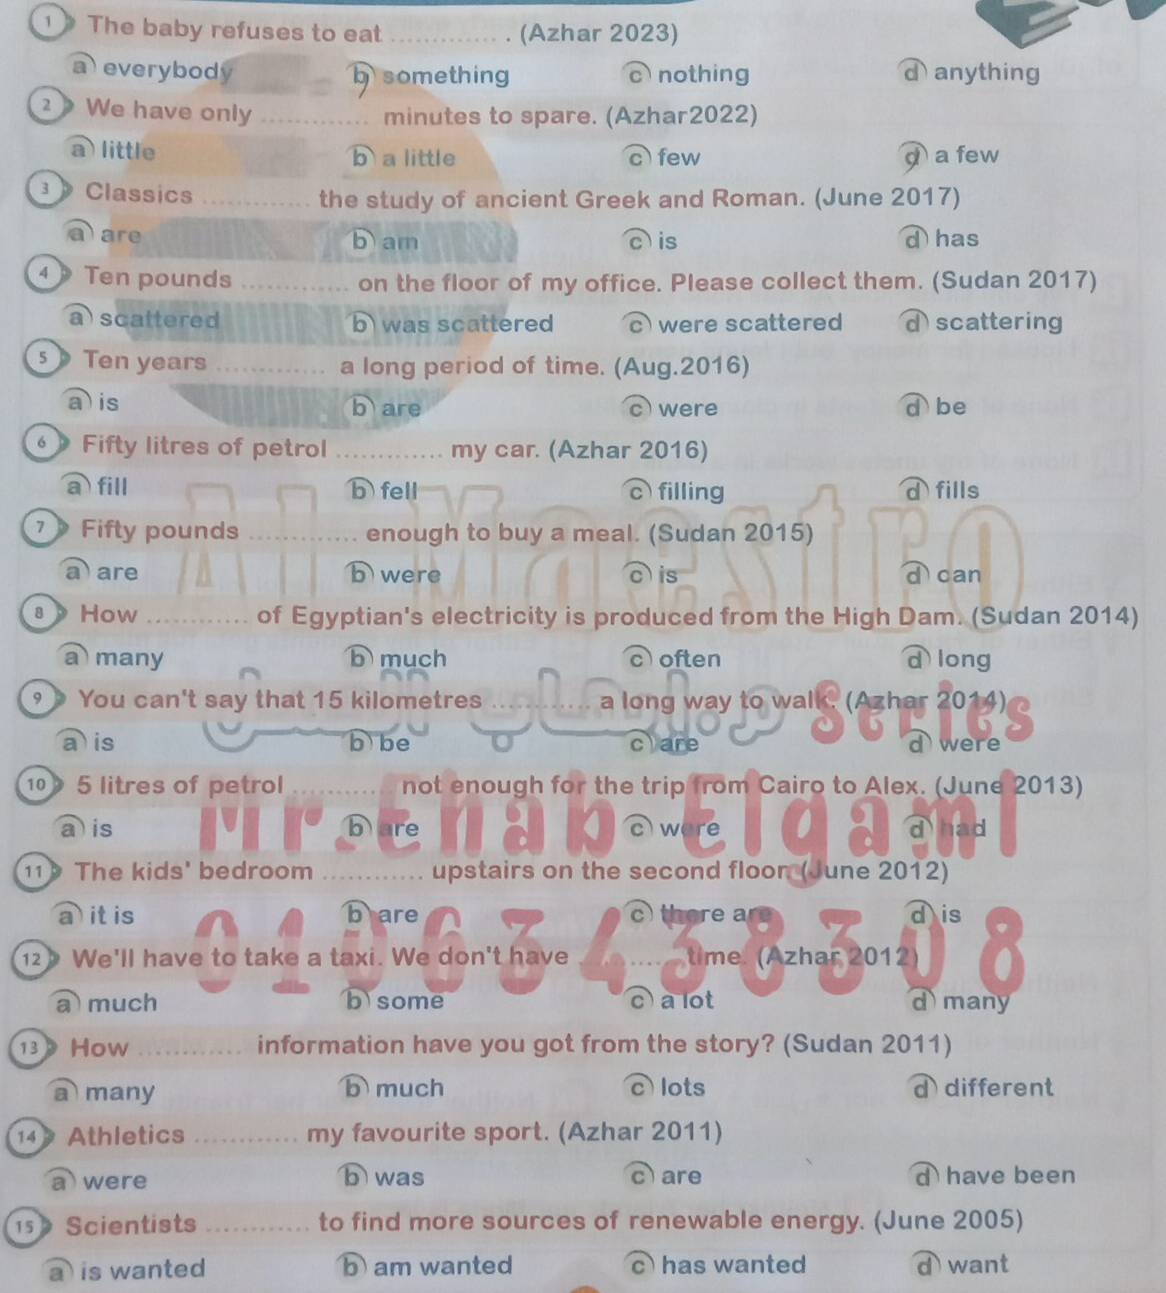 1 The baby refuses to eat ............. . (Azhar 2023)
a everybody b something c nothing d anything
2 We have only ............. minutes to spare. (Azhar2022)
a little b a little c few d a few
3 Classics ............. the study of ancient Greek and Roman. (June 2017)
a are b am c is d has
4 Ten pounds ............. on the floor of my office. Please collect them. (Sudan 2017)
a scattered b was scattered c were scattered d scattering
5 Ten years ............. a long period of time. (Aug.2016)
a is b are c were d be
6 Fifty litres of petrol ............. my car. (Azhar 2016)
a fill b fell c filling d fills
7 Fifty pounds ............. enough to buy a meal. (Sudan 2015)
a are b were c is d can
8 How ............. of Egyptian's electricity is produced from the High Dam. (Sudan 2014)
a many b much c often d long
9 You can't say that 15 kilometres ............. a long way to walk. (Azhar 2014)
a is b be c are d were
10 5 litres of petrol ............. not enough for the trip from Cairo to Alex. (June 2013)
a is b are c were d had
11 The kids' bedroom ............. upstairs on the second floor. (June 2012)
a it is b are c there are d is
12 We'll have to take a taxi. We don't have ............. time. (Azhar 2012)
a much b some c a lot d many
13 How ............. information have you got from the story? (Sudan 2011)
a many b much c lots d different
14 Athletics ............. my favourite sport. (Azhar 2011)
a were b was c are d have been
15 Scientists ............. to find more sources of renewable energy. (June 2005)
a is wanted b am wanted c has wanted d want
Al Maestro
Series
Mr.Ehab Elgaml
01063438308